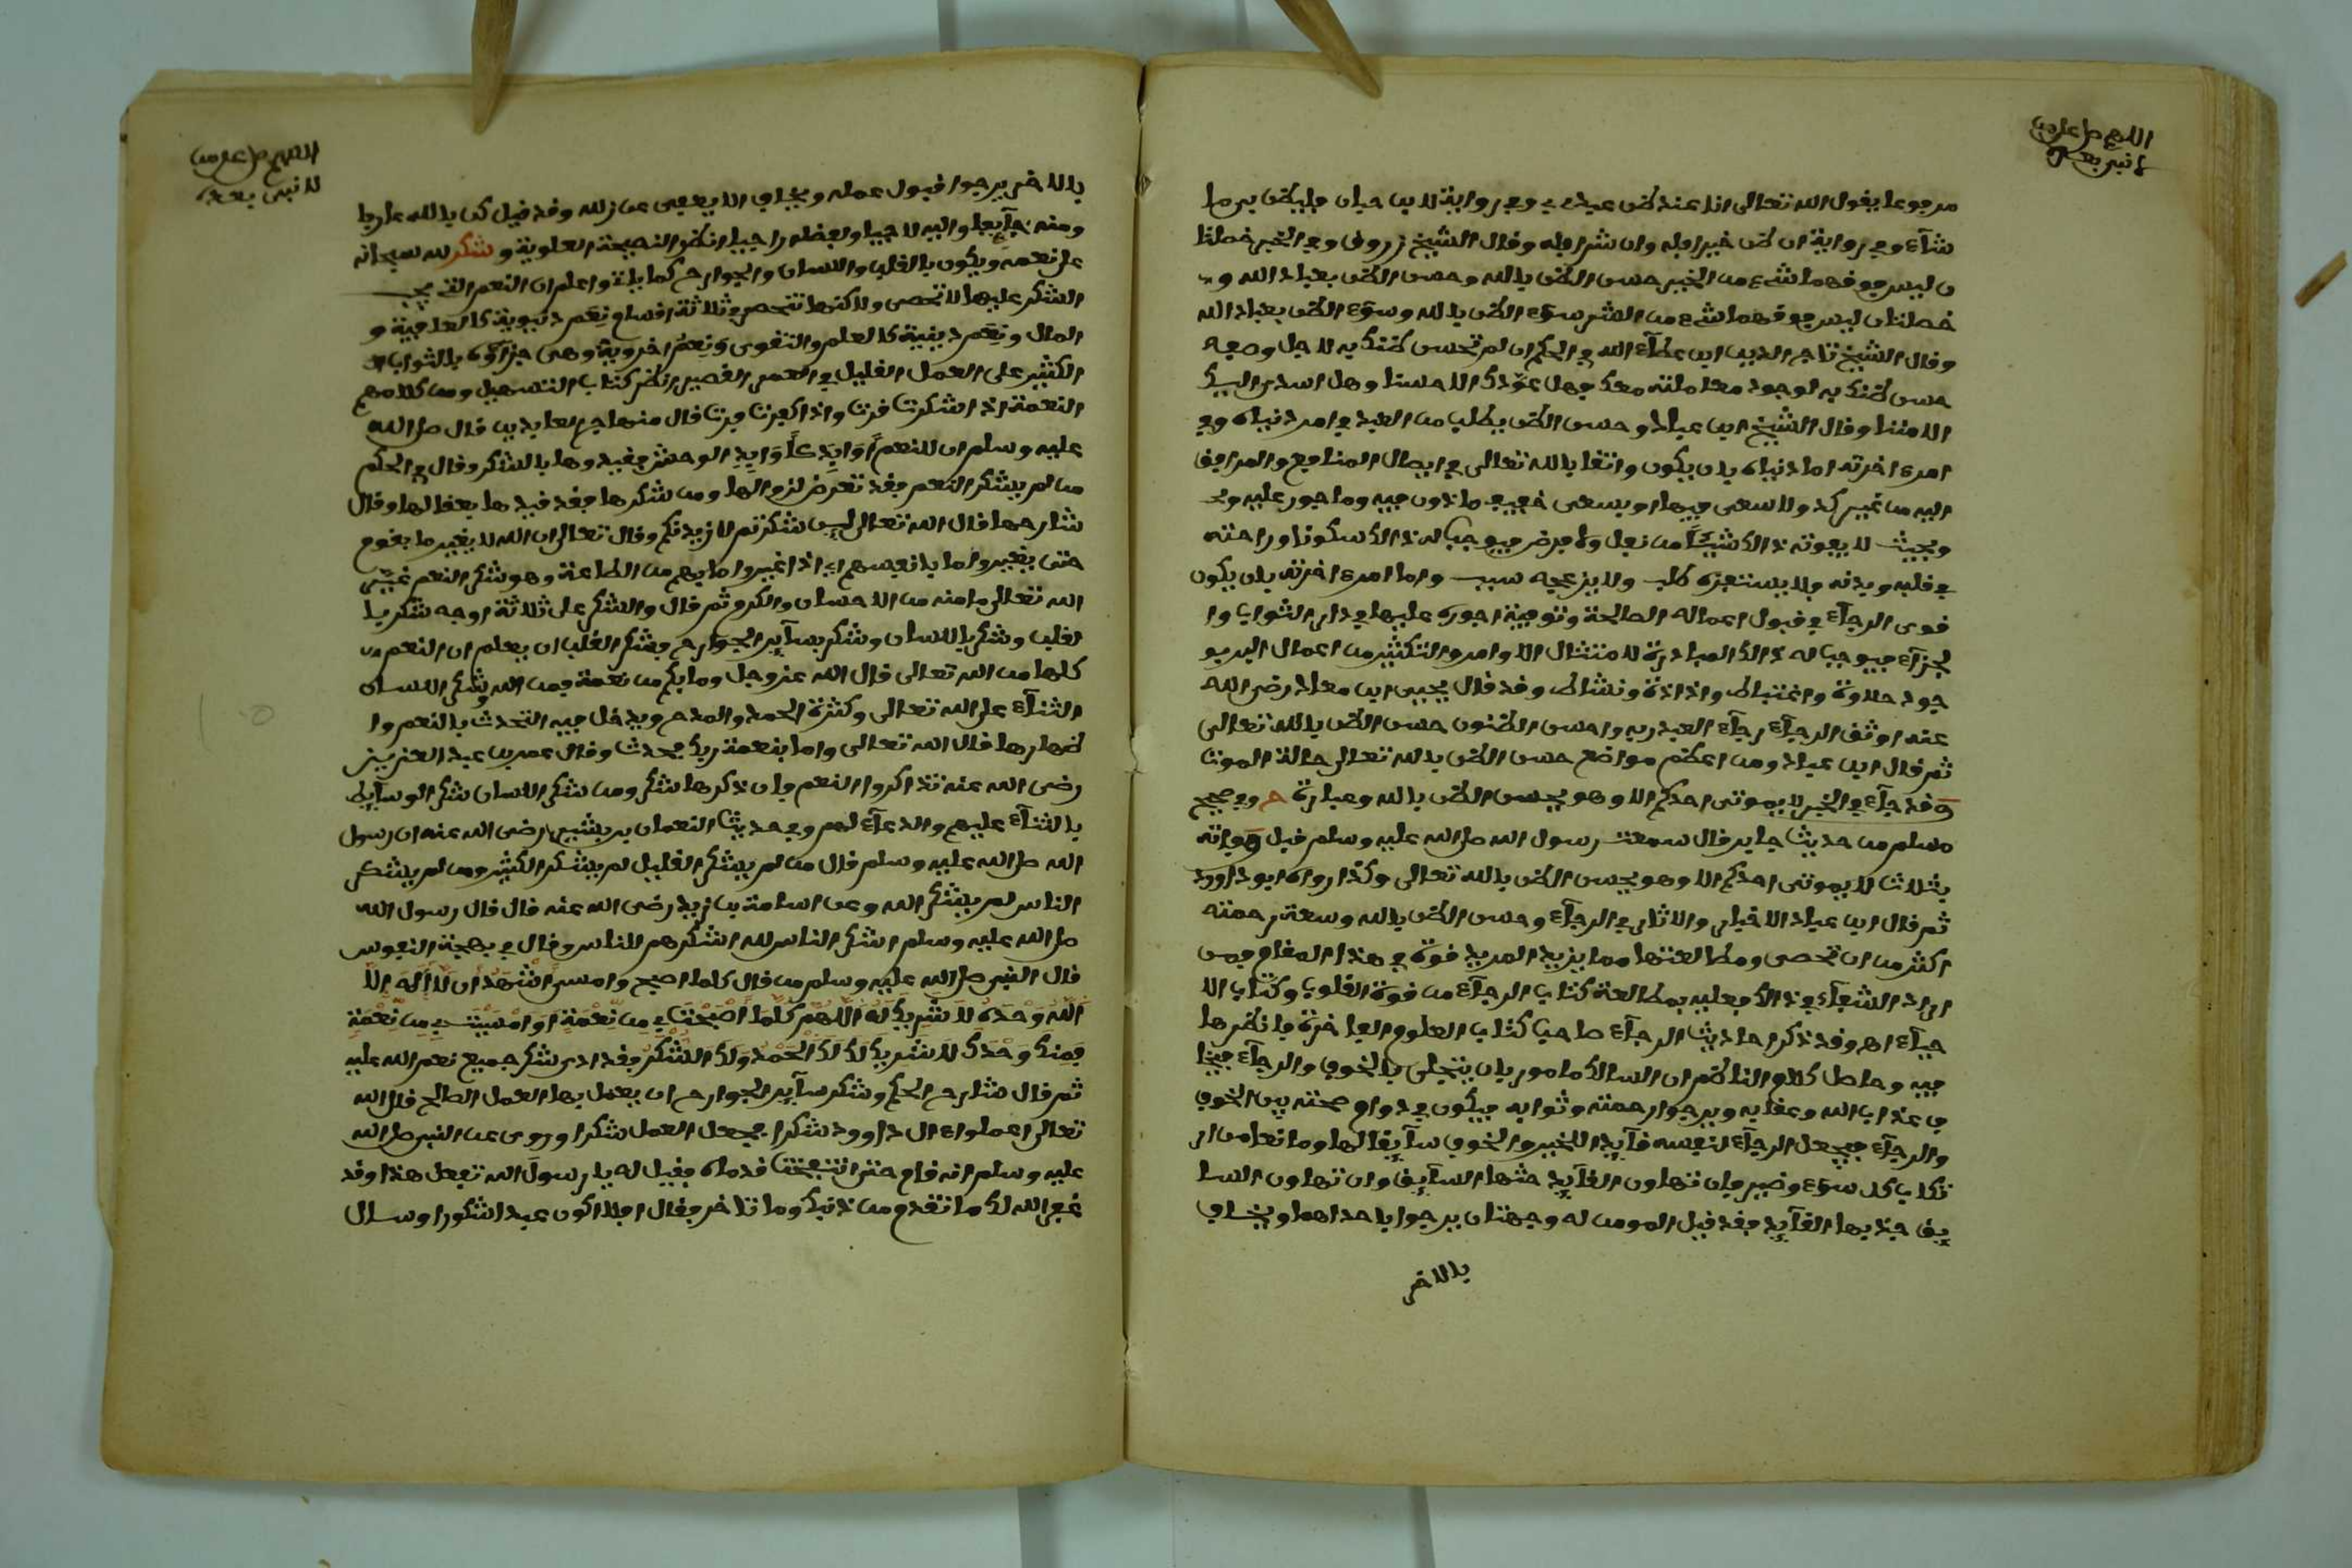 اللهم صل على من
لا نبي بعده
مرفوعا يقول الله تعالى انا عند ظن عبدي بي وفي رواية لابن حبان فليظن بي ما
شآء وفي رواية ان ظن خيرا فله وان شرا فله وقال الشيخ زروق وفي الخبر خصلتا
ن ليس فوقهما شيء من الخير حسن الظن بالله وحسن الظن بعباد الله و
خصلتان ليس فوقهما شيء من الشر سوء الظن بالله وسوء الظن بعباد الله
وقال الشيخ تاج الدين ابن عطآء الله في الحكم ان لم تحسن ظنك به لاجل وصفه
حسن ظنك به لوجود معاملته معك فهل عودك الا حسنا وهل اسدى اليك
الا مننا وقال الشيخ ابن عباد وحسن الظن يطلب من العبد في امر دنياه وفي
امر ءاخرته اما دنياه بان يكون واثقا بالله تعالى في ايصال المنافع والمرافق
اليه من غير كد ولا سعي فيها او بسعي خفيف ماذون فيه وماجور عليه و
بحيث لا يفوته ذالك شيئا من نفل ولا فرض فيوجب له ذالك سكونا وراحة
في قلبه وبدنه ولا يستفزه طلب ولا يزعجه سبب واما امر ءاخرته بان يكون
قوي الرجآء في قبول اعماله الصالحة وتوفية اجوره عليها في دار الثواب وا
لجزآء فيوجب له ذالك المبادرة لامتثال الاوامر والتكثير من اعمال البر بو
جود حلاوة واغتباط ولذاذة ونشاط وقد قال يحيى ابن معاذ رضي الله
عنه اوثق الرجآء رجآء العبد ربه واحسن الظنون حسن الظن بالله تعالى
ثم قال ابن عباد ومن اعظم مواضع حسن الظن بالله تعالى حالة الموت
وقد جآء في الخبر لا يموتن احدكم الا وهو يحسن الظن بالله وعبارة ح وفي صحيح
مسلم من حديث جابر قال سمعت رسول الله صلى الله عليه وسلم قبل وفاته
بثلاث لا يموتن احدكم الا وهو يحسن الظن بالله تعالى وكذا رواه ابو داوود
ثم قال ابن عباد الاخبار والاثار في الرجآء وحسن الظن بالله وسعة رحمته
اكثر من ان تحصى ومطالعتها مما يزيد المريد قوة في هذا المقام فمن
اراد الشفآء في ذالك فعليه بمطالعة كتاب الرجآء من قوة القلوب وكتاب الا
حيآء اهـ وقد ذكر احاديث الرجآء صاحب كتاب العلوم الفاخرة فانظرها
فيه وحاصل كلام الناظم ان السالك مامور بان يتحلى بالخوف والرجآء فيخا
ف عذاب الله وعقابه ويرجوا رحمته وثوابه فيكون في دوام صحته بين الخوف
والرجآء فيجعل الرجآء لنفسه قآئدا للخير والخوف سآئقا لها ومانعا من ار
تكاب كل سوء وضير فان تهاون القآئد حثها السآئق وان تهاون السا
ئق جذبها القآئد فقد قيل المومن له وجهتان يرجوا باحداهما ويخاف
بالاخر
اللهم صل على من
لا نبي بعده
بالاخر يرجوا قبول عمله ويخاف الا يعفى عن زلله وقد قيل كن بالله عارفا
ومنه خآئفا واليه لاجيا ولفضله راجيا انظر النصيحة العلوية وشكر لله سبحانه
على نعمه ويكون بالقلب واللسان والجوارح كما ياتي واعلم ان النعم التي يجب
الشكر عليها لا تحصى ولاكنها تنحصر في ثلاثة اقسام نعم دنيوية كالعافية و
المال ونعم دينية كالعلم والتقوى ونعم اخروية وهي جزآؤه بالثواب ا
لكثير على العمل القليل في العمر القصير انظر كتاب التسهيل ومن كلامهم
النعمة اذا شكرت قرت واذا كفرت فرت قال منهاج العابدين قال صلى الله
عليه وسلم ان للنعم اوابد كاوابد الوحش فقيدوها بالشكر وقال في الحكم
من لم يشكر النعم فقد تعرض لزوالها ومن شكرها فقد قيدها بعقالها وقال
شارحها قال الله تعالى لين شكرتم لازيدنكم وقال تعالى ان الله لا يغير ما بقوم
حتى يغيروا ما بانفسهم اي اذا غيروا ما بهم من الطاعة وهو شكر النعم غير
الله تعالى ما منه من الاحسان والكرم ثم قال والشكر على ثلاثة اوجه شكر با
لقلب وشكر باللسان وشكر بسآئر الجوارح فشكر القلب ان يعلم ان النعم
كلها من الله تعالى قال الله عز وجل وما بكم من نعمة فمن الله وشكر اللسان
الثنآء على الله تعالى وكثرة الحمد والمدح ويدخل فيه التحدث بالنعم وا
ظهارها قال الله تعالى واما بنعمة ربك فحدث وقال عمر بن عبد العزيز
رضي الله عنه تذاكروا النعم فان ذكرها شكر ومن شكر اللسان شكر الوسآئط
بالثنآء عليهم والدعآء لهم وفي حديث النعمان بن بشير رضي الله عنه ان رسول
الله صلى الله عليه وسلم قال من لم يشكر القليل لم يشكر الكثير ومن لم يشكر
الناس لم يشكر الله وعن اسامة بن زيد رضي الله عنه قال قال رسول الله
صلى الله عليه وسلم اشكر الناس لله اشكرهم للناس وقال في بهجة النفوس
قال النبي صلى الله عليه وسلم من قال كلما اصبح وامسى اشهد ان لا اله الا
الله وحده لا شريك له اللهم كلما اصبحت بي من نعمة او امسيت بي من نعمة
فمنك وحدك لا شريك لك لك الحمد ولك الشكر فقد ادى شكر جميع نعم الله عليه
ثم قال شارح الحكم وشكر سآئر الجوارح ان يعمل بها العمل الصالح قال الله
تعالى اعملوا ءال داوود شكرا فجعل العمل شكرا وروي عن النبي صلى الله
عليه وسلم انه قام حتى انتفخت قدماه فقيل له يا رسول الله تفعل هذا وقد
غفر الله لك ما تقدم من ذنبك وما تاخر فقال افلا اكون عبدا شكورا وسال